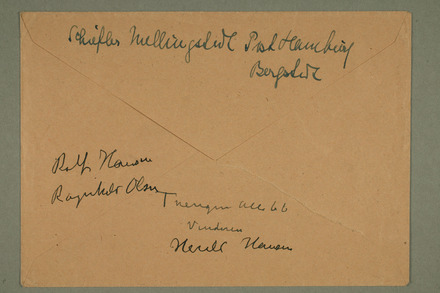 Schiefler Mellingstedt Post Hamburg
Bergstedt
Rolf Hansen
Ragnhild Olsen
66
Vinderen
Hansen